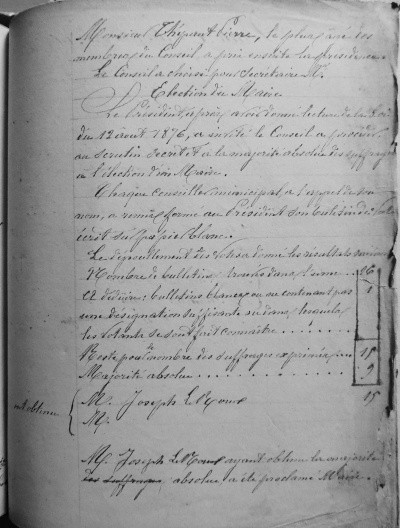 Monsieur Thépaut Pierre, le plus âgé des
membres du Conseil, a pris ensuite la présidence.
Le Conseil a choisi pour Secrétaire M.
Election du Maire
Le Président, après avoir donné lecture de la Loi
du 12 août 1876, a invité le Conseil a procéder
au scrutin secret et a la majorité absolue des suffrages
a l'élection d'un Maire.
Chaque conseiller municipal, a l'appel de son
nom, a remis fermé au Président son bulletin de vote
écrit sur papier blanc.
Le dépouillement des votes a donné les résultats suivants
Nombre de bulletins trouvés dans l'urne ... 16
A déduire: bulletins blancs ou ne contenant pas 1
une désignation suffisante ou dans lesquels
les votants se sont fait connaître . . . . . .
Reste pour le nombre des suffrages exprimés ... 15
Majorité absolue . . . . . . . . . . . . 9
ont obtenu { M. Joseph Le 15
M.
M. Joseph Le ayant obtenu la majorité
des suffrages absolue a été proclamé Maire.